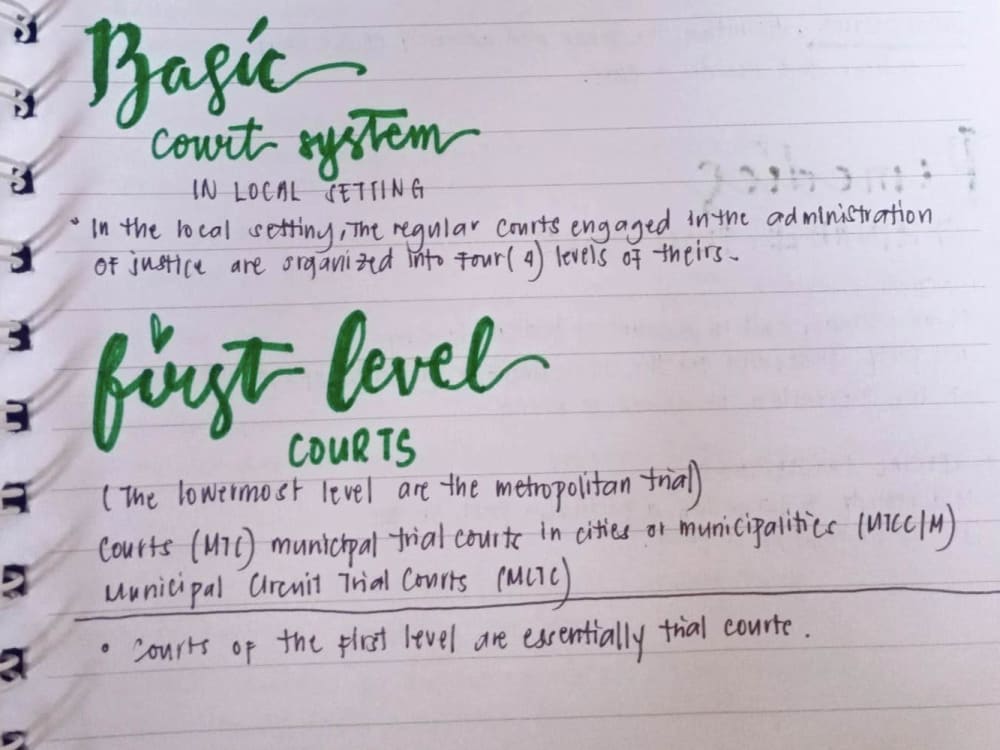 Basic
court system
IN LOCAL SETTING
• In the local setting, The regular courts engaged in the administration
of justice are organized into Four (4) levels of theirs.
first level
COURTS
(The lowermost level are the metropolitan trial)
Courts (MTC) municipal trial courts in cities or municipalities (MTCC/M)
Municipal Circuit Trial Courts (MCTC)
• Courts of the first level are essentially trial courts.